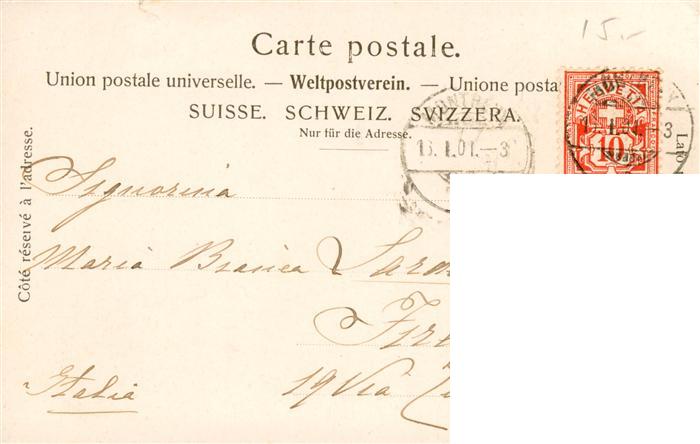 15.-
Carte postale.
Union postale universelle. — Weltpostverein. — Unione posta
SUISSE. SCHWEIZ. SVIZZERA.
Nur für die Adresse.
Côté réservé à l'adresse.
Lato
HELVETIA
10
13.I.01.-3
Signorina
Maria Bianca
19 Via
Italia